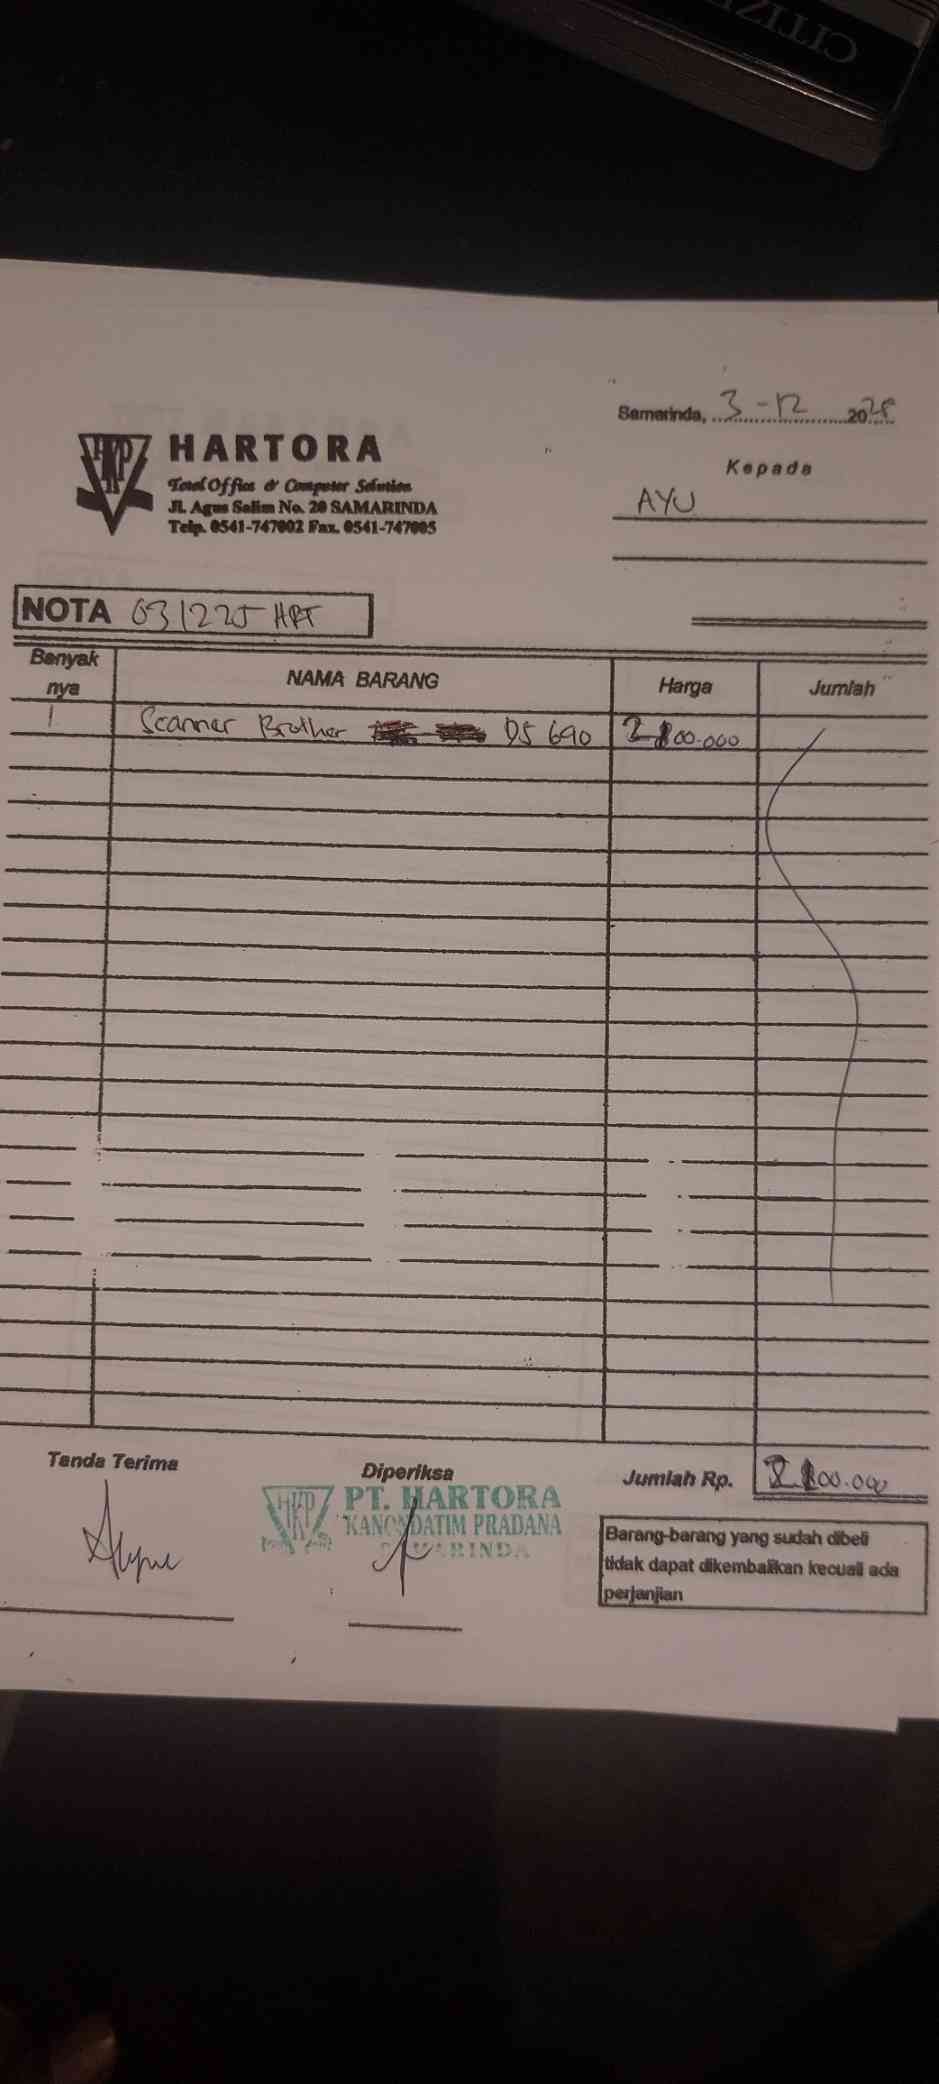 CITIZE
Samarinda, 3-12 2025
HARTORA
Total Office & Computer Solution
Jl. Agus Salim No. 20 SAMARINDA
Telp. 0541-747002 Fax. 0541-747005
Kepada
AYU
NOTA 031225 HPT
Banyak nya NAMA BARANG Harga Jumlah
1 Scanner Brother DS 640 00.000
Tanda Terima
Diperiksa
HKP
PT. HARTORA
KANCADATIM PRADANA
SAMARINDA
Jumlah Rp. 00.000
Barang-barang yang sudah dibeli
tidak dapat dikembalikan kecuali ada
perjanjian